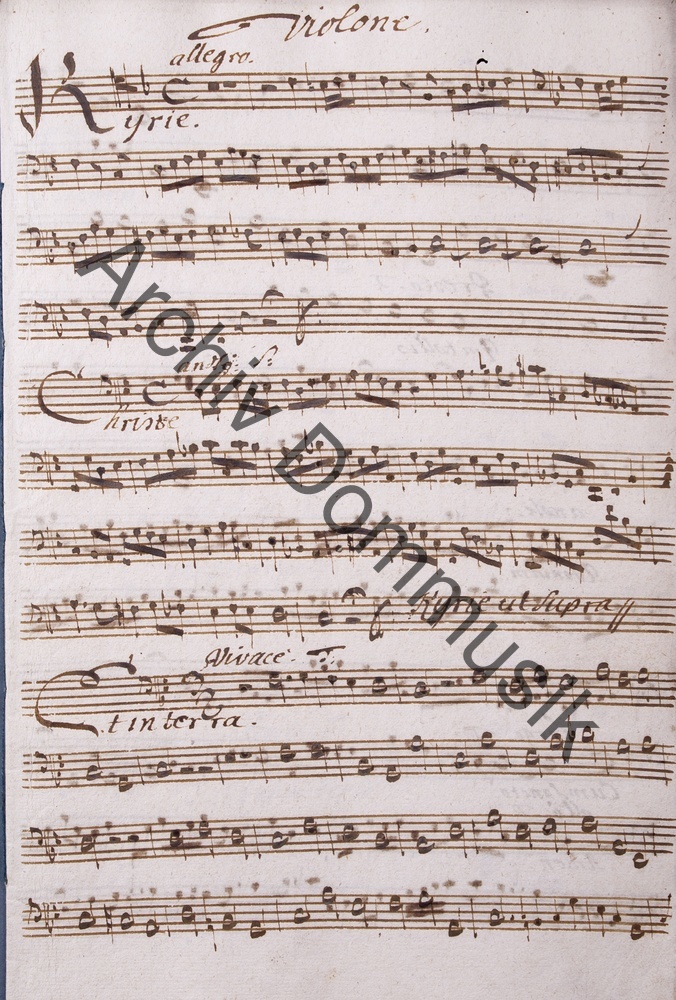 Violone.
allegro.
Kyrie.
Christe
Kyrie ut Supra
Vivace.
Et in terra.
Archiv Dommusik